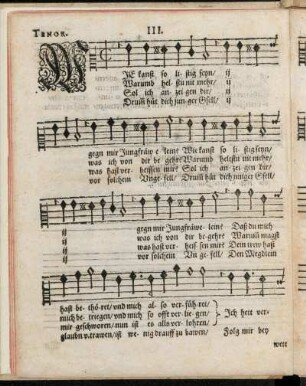 TENOR. III.
WIE kanst so listig seyn/ ij
Warumb helstu mit mehr/ ij
Sol ich anzeigen dir/ ij
Drumb hüt dich junger Gsell/ ij
gegn mir Jungfräwelein? Wie kanst so listig seyn/
was ich von dir begehr? Warumb helstu mit mehr/
was hast verheissen mir? Sol ich anzeigen dir/
vor solchem Ungefell/ Drumb hüt dich junger Gsell/
ij gegn mir Jungfräwelein? Daß du mich
ij was ich von dir begehr? Warumb
ij was hast verheissen mir? Dein
ij vor solchem Ungefell/ Den
hast bethöret/ und mich also verführet/
mich betriegen/ und mich so offt verliegen/ Ich hett ver-
mir geschworen/ nun ist es alls verlohren/
glaubn vertrawen/ ist wenig drauff zu bawen/ Folg mir bey
weit